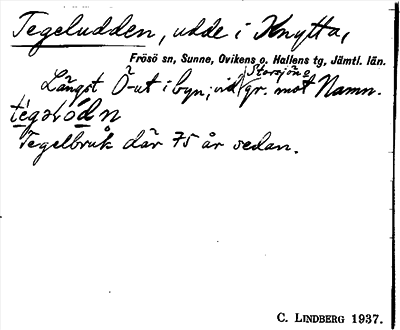 Tegeludden, udde i Knytta,
Frösö sn, Sunne, Ovikens o. Hallens tg, Jämtl. län.
Längst Ö-ut i byn; vid Storsjön o gr. mot Namn.
Tegelbruk där 75 år sedan.
C. LINDBERG 1937.